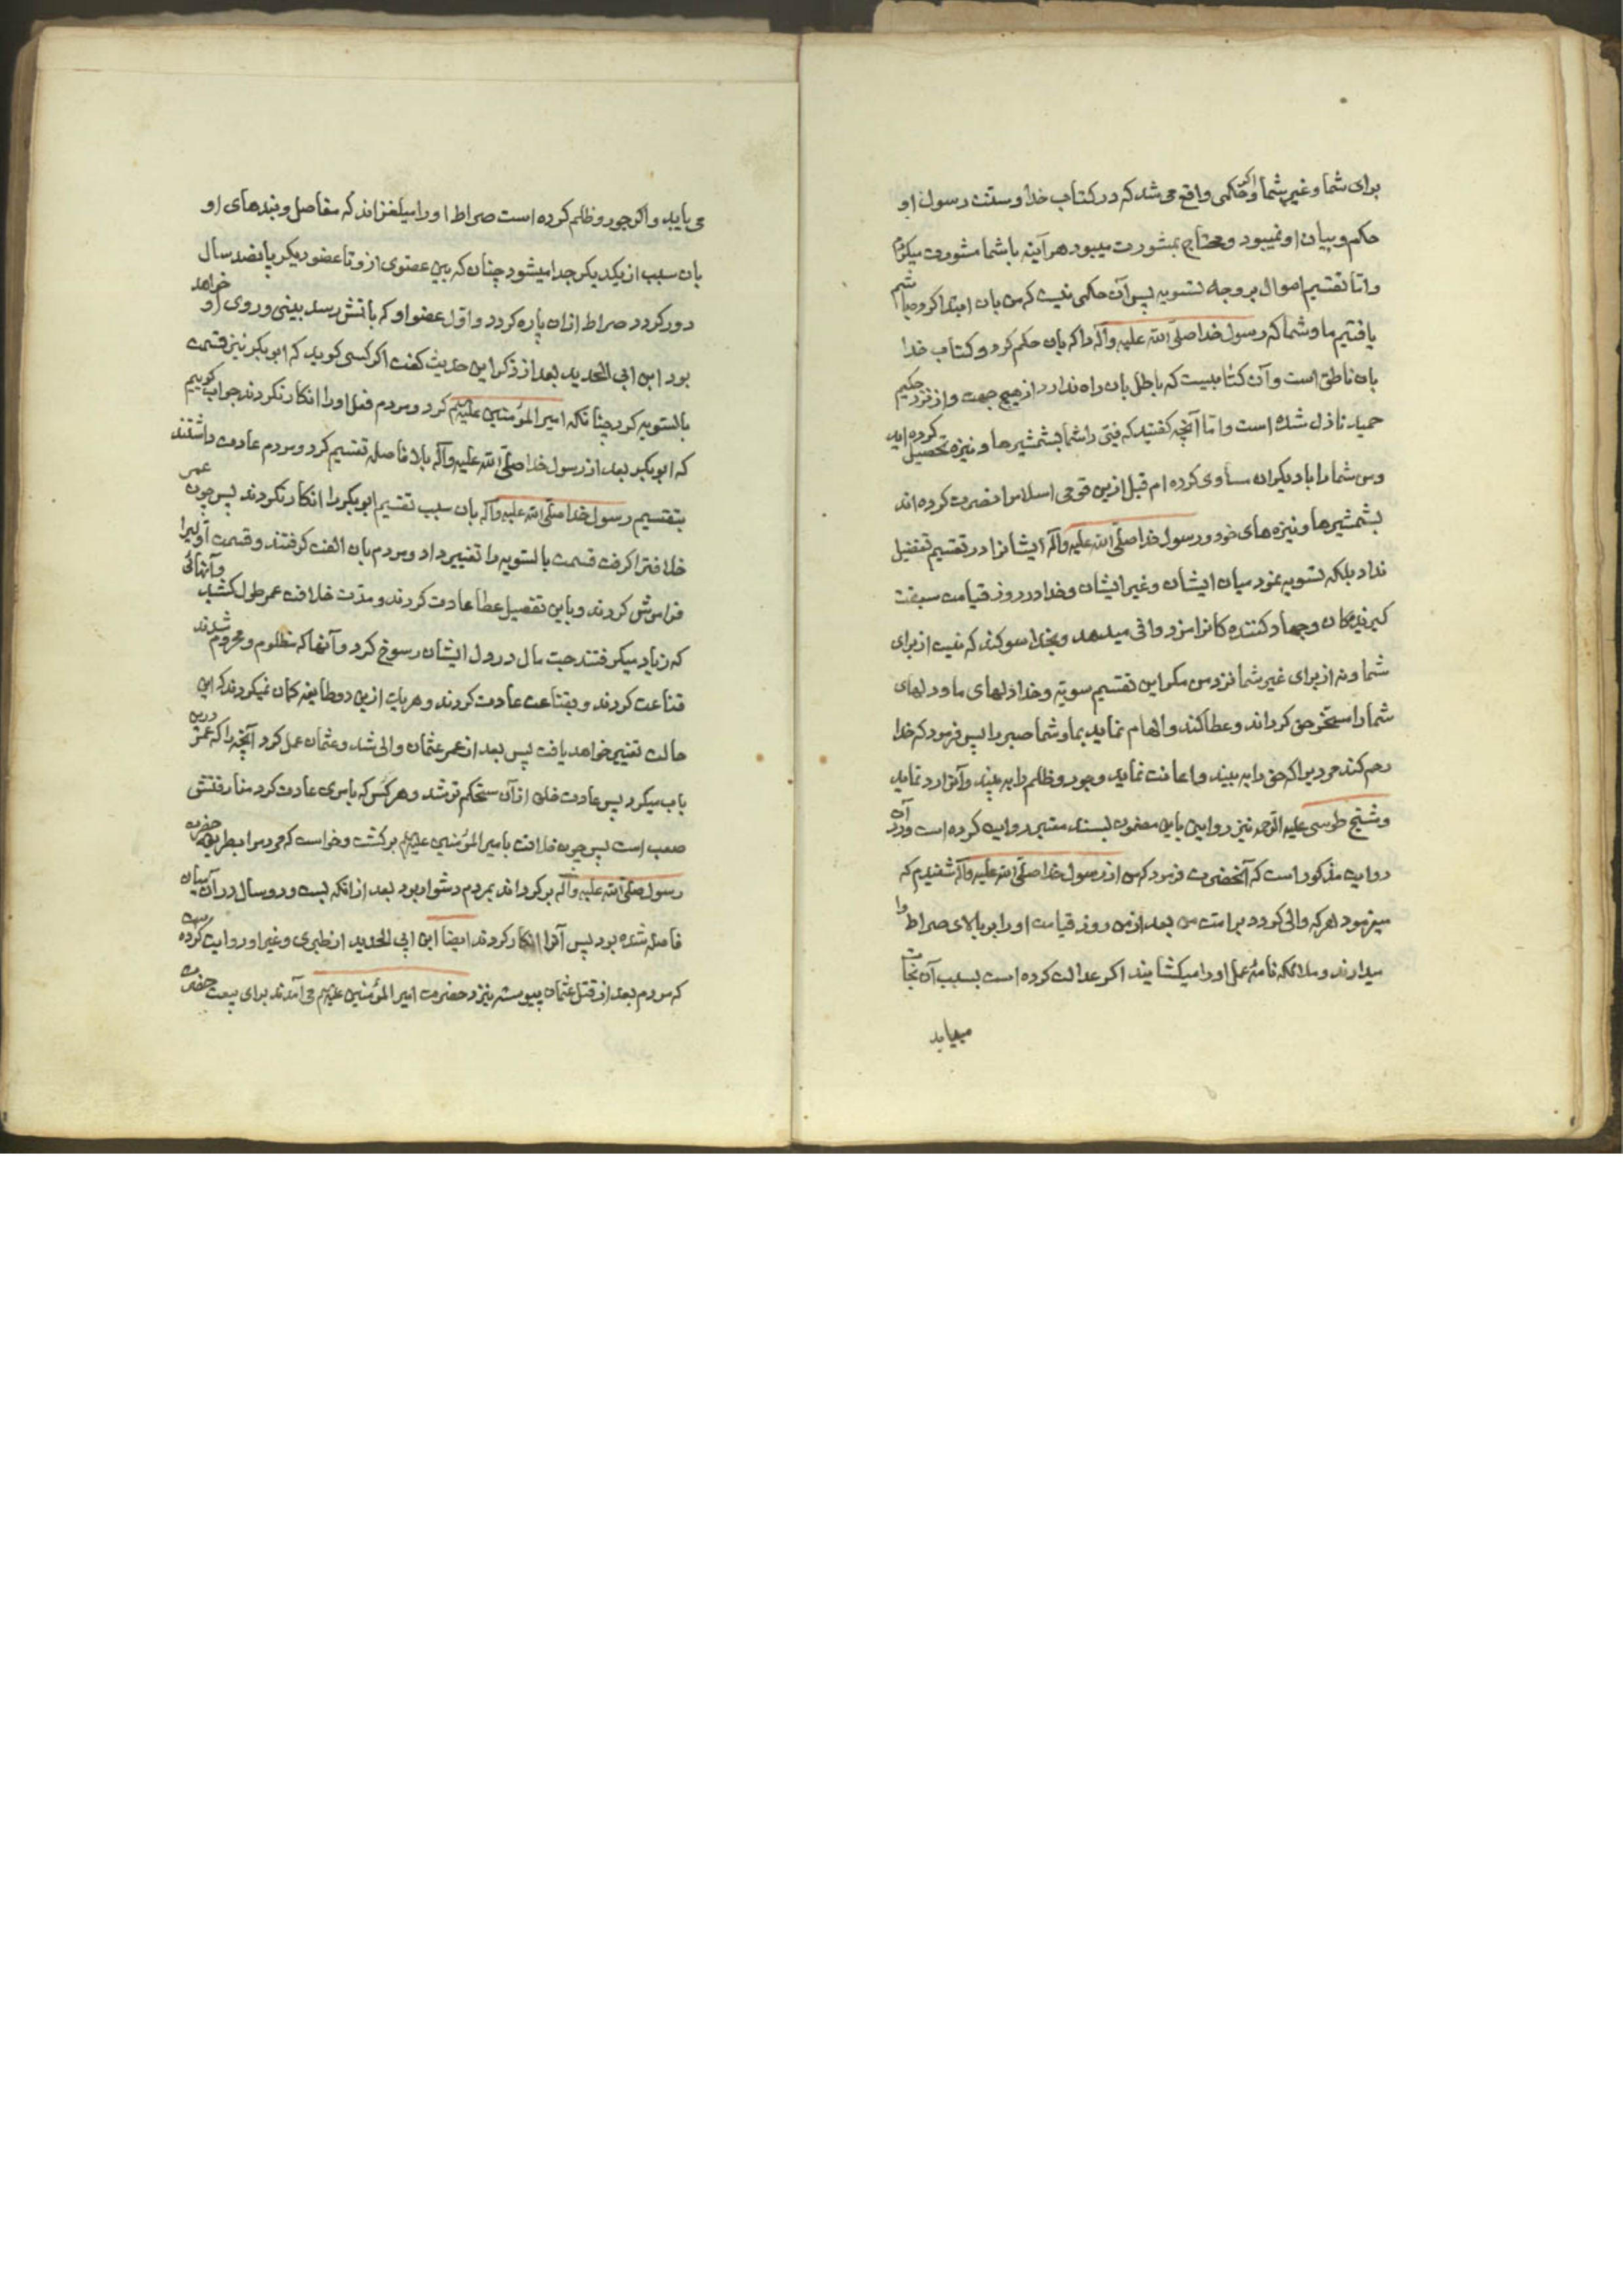 برای شما و غیر شما و اکر حکمی واقع می شد که در کتاب خدا و سنت رسول او
حکم و بیان او نمیبود و محتاج بمشورت میبود هر آینه با شما مشورت میکردم
و اما تقسیم اموال بر وجه تسویه پس آن حکمی نیست که من بان ابتدا کرده باشم
یافتیم ما و شما که رسول خدا صلی الله علیه وآله را که بان حکم کرد و کتاب خدا
بان ناطق است و آن کتابیست که باطل بان راه ندارد از هیچ جهت و از نزد حکیم
حمید نازل شده است و اما آنچه کفتید که فیئ را شما بشمشیرها و نیزه تحصیل کرده اید
و من شما را با دیکران مساوی کرده ام قبل ازین قومی اسلام را نصرت کرده اند
بشمشیرها و نیزه های خود و رسول خدا صلی الله علیه وآله ایشانرا در تقسیم تفضیل
نداد بلکه تسویه نمود میان ایشان و غیر ایشان و خدا در روز قیامت سبقت
کیرندکان و جهاد کننده کانرا مزد وافی میدهد و بخدا سوکند که نیست از برای
شما و نه از برای غیر شما نزد من مکر این تقسیم سویّه و خدا دلهای ما و دلهای
شما را مسخّر حق کرداند و عطا کند و الهام نماید بما و شما صبر را پس فرمود که خدا
رحم کند مردیرا که حق را به بیند و اعانت نماید و جور و ظلم را به بیند و آنرا رد نماید
و شیخ طوسی علیه الرحمه نیز روایتی باین مضمون بسند معتبر روایت کرده است و در آن
روایت مذکور است که آنحضرت فرمود که من از رسول خدا صلی الله علیه وآله شنیدم که
میفرمود هر که والی کردد بر امت من بعد از من روز قیامت او را بر بالای صراط وا
میدارند و ملائکه نامهٔ عمل او را میکشایند اکر عدالت کرده است بسبب آن نجات
مییابد
می یابد و اکر جور و ظلم کرده است صراط او را میلغزاند که مفاصل و بندهای او
بان سبب از یکدیکر جدا میشود چنان که بین عضوی از و تا عضو دیکر پانصد سال
دور کردد صراط ازان پاره کردد و اوّل عضو او که باتش رسد بینی و روی او خواهد
بود ابن ابی الحدید بعد از ذکر این حدیث کفت اکر کسی کوید که ابوبکر نیز قسمت
بالتسویه کرد چنانکه امیر المؤمنین علیه السلم کرد و مردم فعل او را انکار نکردند جواب کوییم
که ابوبکر بعد از رسول خدا صلی الله علیه وآله بلا فاصله تقسیم کرد و مردم عادت داشتند
بتقسیم رسول خدا صلی الله علیه وآله بان سبب تقسیم ابوبکر را انکار نکردند پس چون عمر
خلافترا کرفت قسمت بالتسویه را تغییر داد و مردم بان الفت کرفتند و قسمت اولیرا
فراموش کردند و باین تفضیل عطا عادت کردند و مدّت خلافت عمر طول کشید و آنهائی
که زیاد میکرفتند حبّ مال در دل ایشان رسوخ کرد و آنها که مظلوم و محروم شدند
قناعت کردند و بقناعت عادت کردند و هر یک ازین دو طایفه کمان نمیکردند که این
حالت تغییر خواهد یافت پس بعد از عمر عثمان والی شد و عثمان عمل کرد آنچه را که عمر درین
باب میکرد پس عادت خلق ازان مستحکم تر شد و هر کس که بامری عادت کرد مفارقتش
صعب است پس چون خلافت بامیر المؤمنین علیه السلم برکشت و خواست که مردم را بطریقه حضرت
رسول صلی الله علیه وآله برکرداند بمردم دشوار بود بعد از انکه بیست و دو سال در آن میان
فاصله شده بود پس آنرا انکار کردند ایضا ابن ابی الحدید از طبری و غیر او روایت کرده است
که مردم بعد از قتل عثمان پیوسته بنزد حضرت امیر المؤمنین علیه السلم می آمدند برای بیعت حضرت